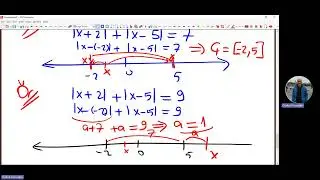 |x+2| + |x-5| = 7
|x-(-2)| + |x-5| = 7 ⇒ Ç = [-2,5]
x x
-2 0 5
Ör
|x+2| + |x-5| = 9
|x-(-2)| + |x-5| = 9
a+7 + a = 9 ⇒ a = 1
7 a
-2 x 0 5 x